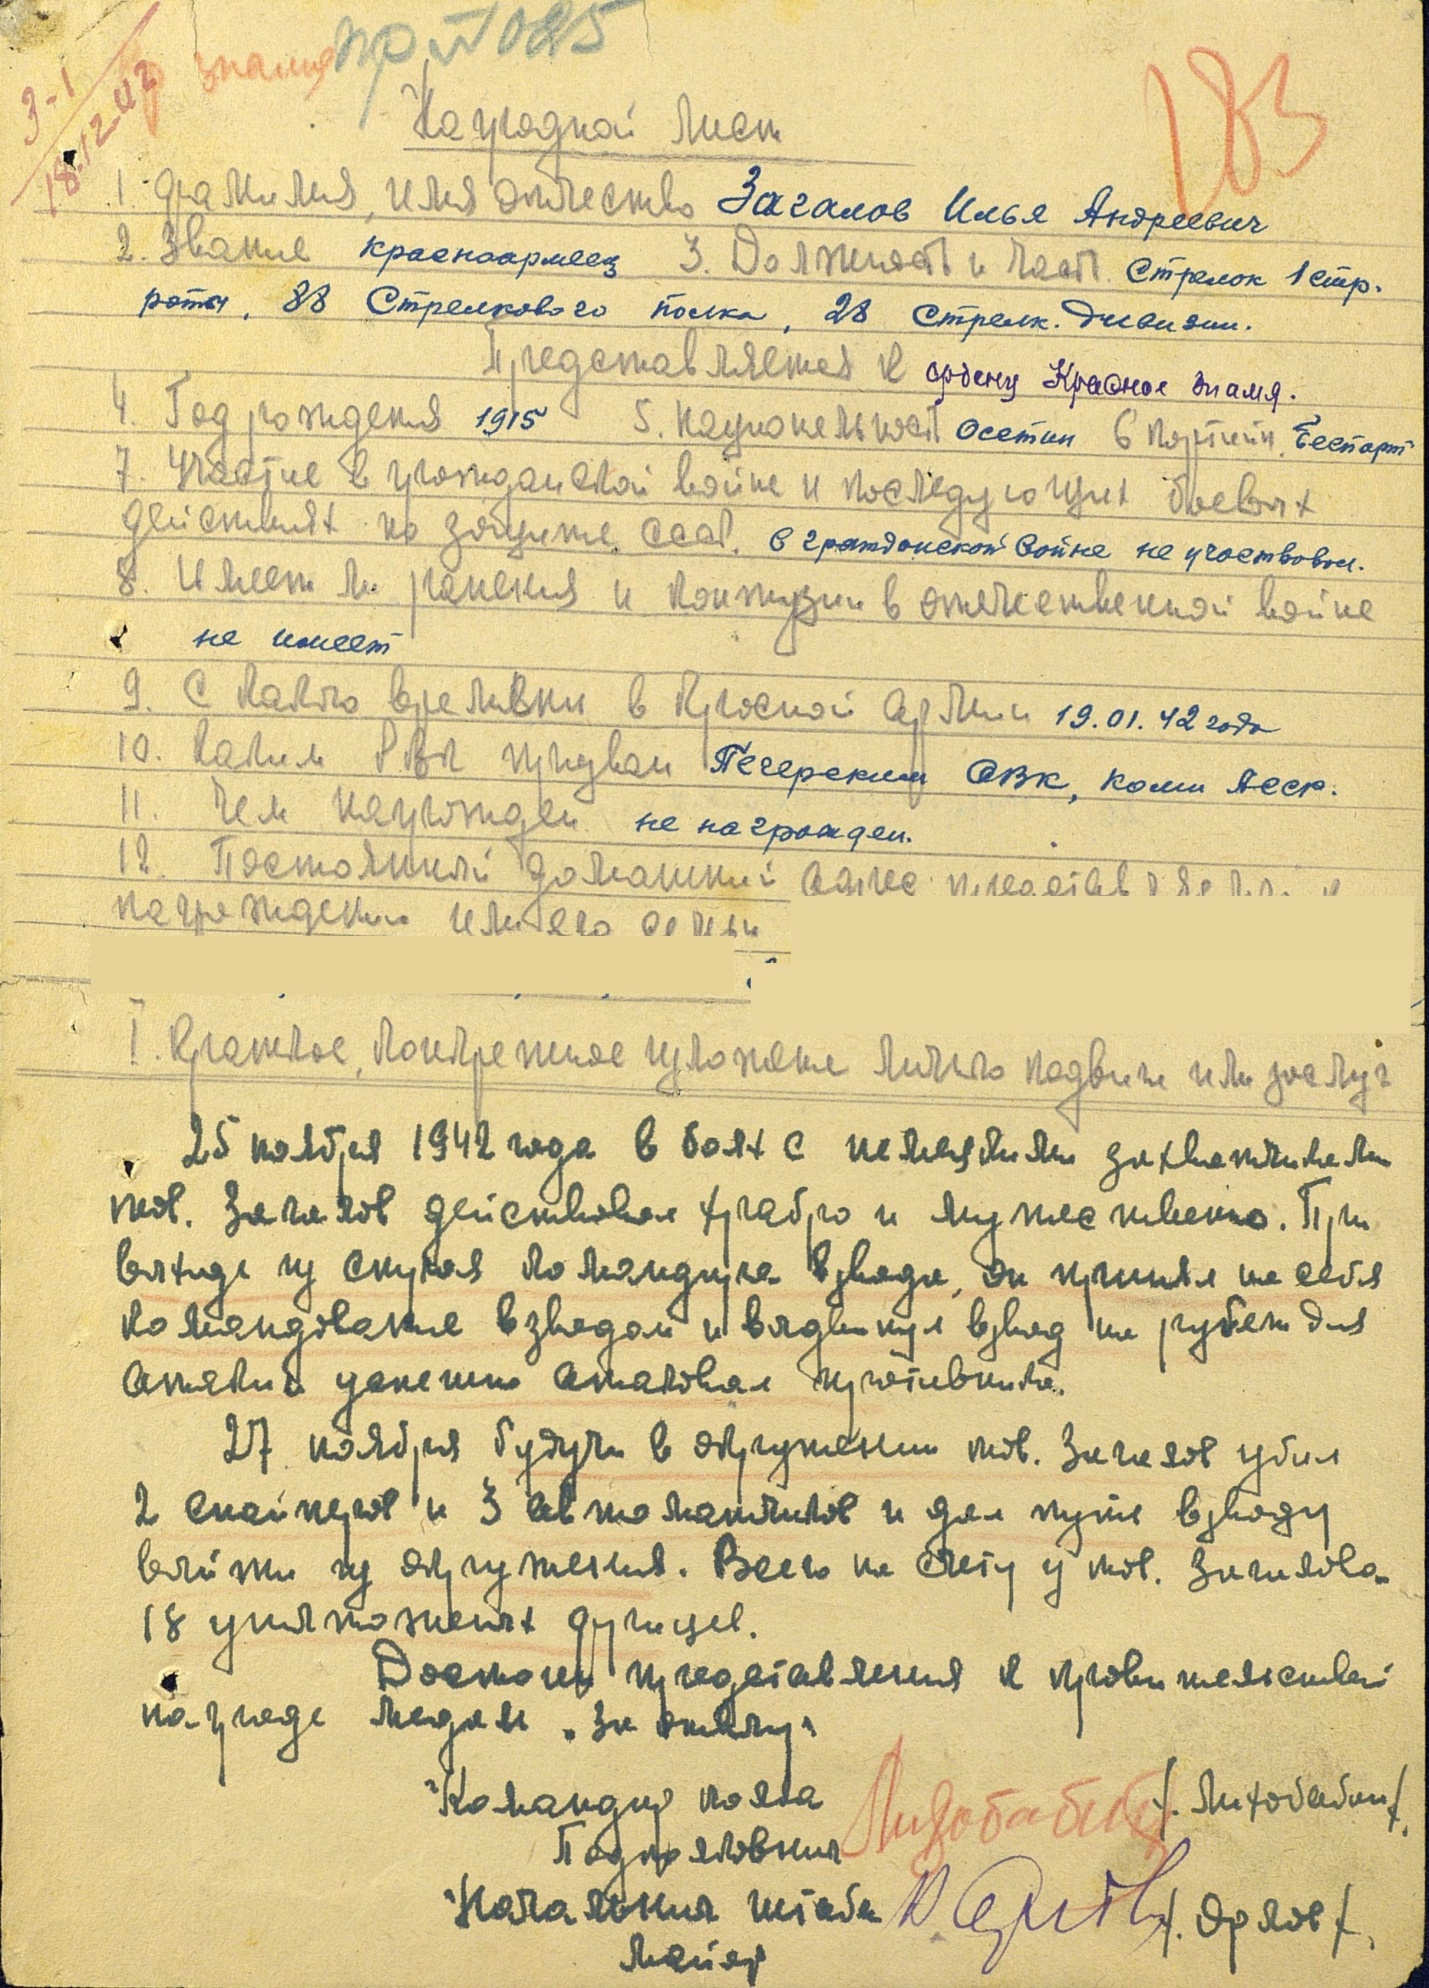 3-1
18.12.42
Кр знамя
пр № 025
183
Наградной лист
1. Фамилия, имя отчество Загалов Илья Андреевич
2. Звание красноармеец 3. Должность и часть стрелок 1 стр.
роты, 88 Стрелкового полка, 28 стрелк. дивизии.
Представляется к ордену Красное знамя.
4. Год рождения 1915 5. национальност осетин 6 партийн. беспарт
7. Участие в гражданской войне и последующих боевых
действиях по защите СССР. в гражданской войне не участвовал.
8. Имеет ли ранения и контузии в отечественной войне
не имеет
9. С какого времени в Красной армии 19.01.42 года
10. Каким РВК призван Печерским ОВК, Коми АССР.
11. Чем награжден не награжден.
12. Постоянный домашний адрес представляемого к
награждению или его семьи
I. Краткое, конкретное изложение личного подвига или заслуг
25 ноября 1942 года в боях с немецкими захватчиками
тов. Загалов действовал храбро и мужественно. При
выходе из строя командира взвода, он принял на себя
командование взводом и выдвинул взвод на рубеж для
атаки и успешно атаковал противника.
27 ноября будучи в окружении тов. Загалов убил
2 снайперов и 3 автоматчиков и дал путь взводу
выйти из окружения. Всего на счету у тов. Загалова
18 уничтоженых фрицев.
Достоин представления к правительствен
награде медали „За отвагу"
Командир полка Лихобабин /. Лихобабин /.
Подполковник
Начальник штаба Орлов /. Орлов /.
майор